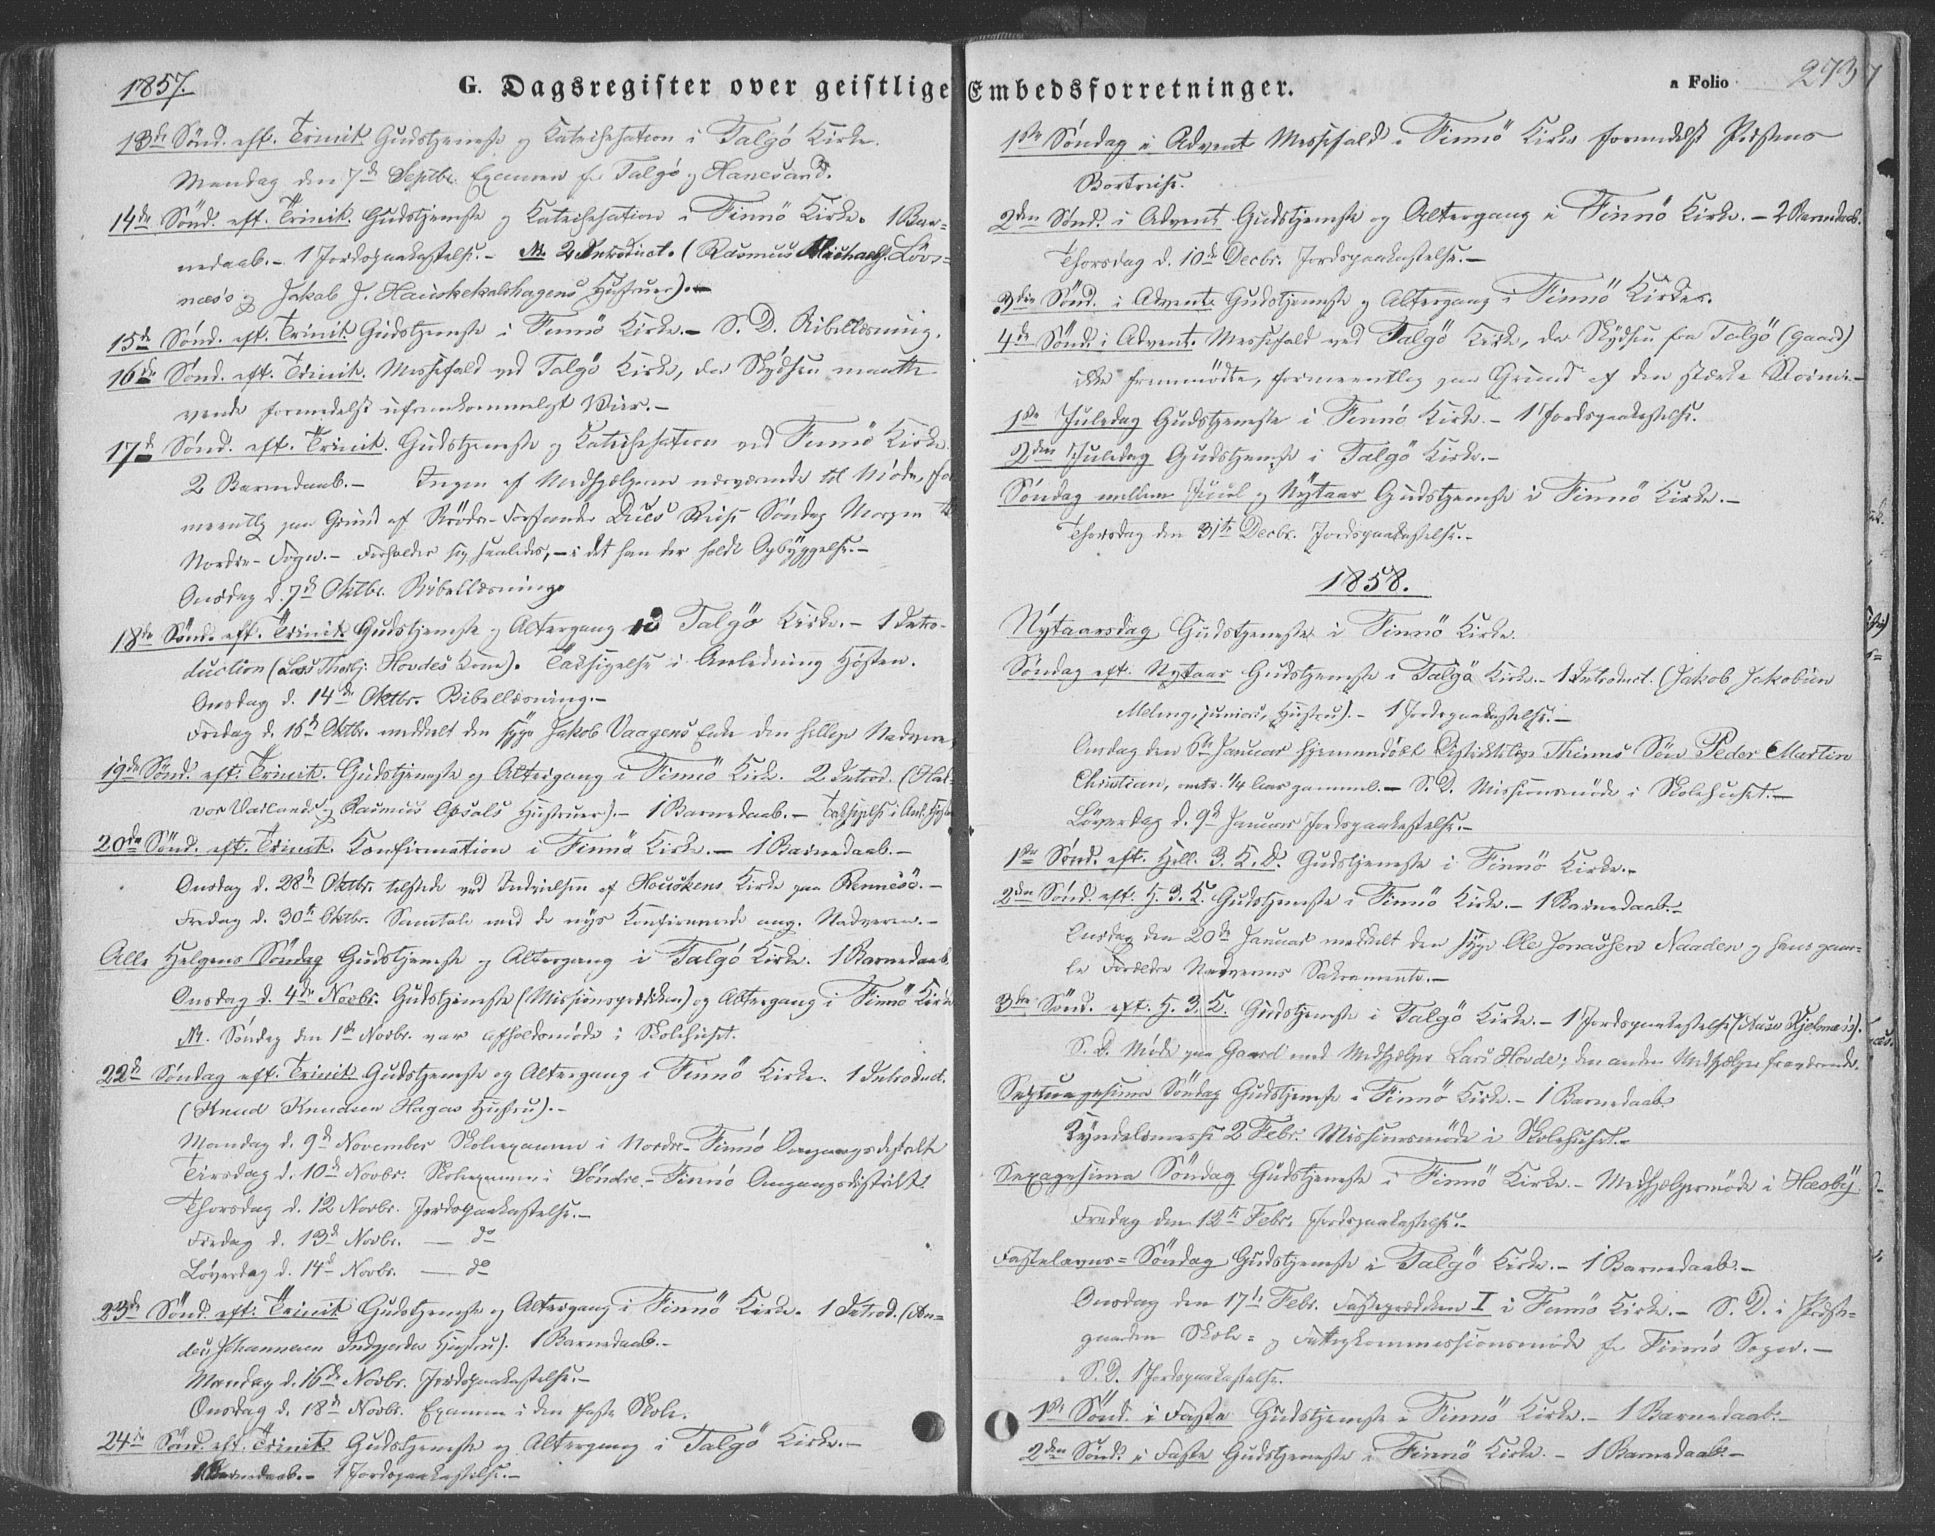 1857.
G. Dagsregister over geistlige Embedsforretninger.
a Folio 293
13de Sønd. eft. Trinit. Gudstjeneste og Katechisation i Talgö Kirke.
Mandag den 7de Septbr. Examen for Talgö og Hanesand.
14de Sønd. eft. Trinit. Gudstjeneste og Katechisation i Finnö Kirke. 1 Bar-
nedaab. - 1 Jordspaakastelse. - 2 Introduct. (Rasmus Michaels. Löv-
næs's og Jakob J. Hauskekalshagens Hustruer).
15de Sønd. eft. Trinit. Gudstjeneste i Finnö Kirke. - S. D. Bibellæsning.
16de Sønd. eft. Trinit. Messefald ved Talgö Kirke, da Skydsen maatte
vende formedelst ufremkommeligt Veir. -
17de Sønd. eft. Trinit. Gudstjeneste og Katechisation ved Finnö Kirke
2 Barnedaab. - Ingen af Medhjælperne nærværende til Møde, for
meentlig paa Grund af Reise Søndag Morgen
Nordre-Sogn. - Forholder sig saaledes, - i det han der holdt Opbyggelse. -
Onsdag d. 7de Oktbr. Bibellæsning.
18de Sønd. eft. Trinit. Gudstjeneste og Altergang i Talgö Kirke. - 1 Intro-
duction (Lars Thorbj: Hovdes Kone). Taksigelse i Anledning Høsten.
Onsdag d. 14de Oktbr. Bibellæsning. -
Fredag d. 16de Oktbr. meddelt den syge Jakob Vaagens Enke den hellige Nadvere.
19de Sønd. eft. Trinit. Gudstjeneste og Altergang i Finnö Kirke. 2 Introd. (Hal-
vor Vadlands og Rasmus Opsals Hustruer). - 1 Barnedaab. - Taksigelse i Anl. Høsten
20de Sønd. eft. Trinit. Konfirmation i Finnö Kirke. - 1 Barnedaab. -
Onsdag d. 28de Oktbr. tilstede ved Indvielsen af Houskens Kirke paa Rennesö. -
Fredag d. 30te Oktbr. Samtale med de nys Konfirmerede ang. Nadveren. -
Alle Helgens Søndag Gudstjeneste og Altergang i Talgö Kirke. 1 Barnedaab
Onsdag d. 4de Novbr. Gudstjeneste (Missionsprædiken) og Altergang i Finnö Kirke
Søndag den 1ste Novbr. var afholdsmøde i Skolehuset.
22de Søndag eft. Trinit. Gudstjeneste og Altergang i Finnö Kirke. 1 Introduct.
(Knud Knudsen Hagas Hustru). -
Mandag d. 9de November Skoleexamen i Nordre-Finnö Omgangsdistrikt
Tirsdag d. 10de Novbr. Skoleexamen i Söndre-Finnö Omgangsdistrikt.
Thorsdag d. 12 Novbr. Jordspaakastelse. -
Fredag d. 13de Novbr. — do
Løverdag d. 14de Novbr. — do
23de Sønd. eft. Trinit. Gudstjeneste og Altergang i Finnö Kirke. 1 Introd. (An-
ders Johannesen Hustru). 1 Barnedaab. -
Mandag d. 16de Novbr. Jordspaakastelse. -
Onsdag d. 18de Novbr. Examen i den faste Skole.
24de Sønd. eft. Trinit. Gudstjeneste og Altergang i Talgö Kirke. -
1 Barnedaab. - 1 Jordspaakastelse. -
1ste Søndag i Advent Messefald i Finnö Kirke formedelst Præstens
Bortreise.
2den Sønd. i Advent Gudstjeneste og Altergang i Finnö Kirke. - 2 Barnedaab.
Thorsdag d. 10de Decbr. Jordspaakastelse. -
3die Sønd. i Advent. Gudstjeneste og Altergang i Finnö Kirke.
4de Sønd. i Advent. Messefald ved Talgö Kirke, da Skydsen fra Talgö (gaard)
ikke fremmødte, formeentlig paa Grund af den stærke Storm. -
1ste Juledag Gudstjeneste i Finnö Kirke. - 1 Jordspaakastelse.
2den Juledag Gudstjeneste i Talgö Kirke. -
Søndag mellem Juul og Nytaar Gudstjeneste i Finnö Kirke. -
Thorsdag den 31te Decbr. Jordspaakastelse. -
1858.
Nytaarsdag Gudstjeneste i Finnö Kirke.
Søndag eft. Nytaar Gudstjeneste i Talgö Kirke. - 1 Introduct. (Jakob Jakobsen
Meling, juniors, Hustru). - 1 Jordspaakastelse. -
Onsdag den 6te Januar hjemmedøbt Thims Søn Peder Martin
Christian, omtr. 1/4 Aar gammel. - S. D. Missionsmøde i Skolehuset. -
Løverdag d. 9de Januar Jordspaakastelse. -
1ste Sønd. eft. Hell. 3. K. D. Gudstjeneste i Finnö Kirke. -
2den Sønd. eft. H. 3. K. Gudstjeneste i Finnö Kirke. - 1 Barnedaab. -
Onsdag den 20de Januar meddelt den syge Ole Jonassen Naaden og hans gam-
le Forældre Nadverens Sakramente. -
3die Sønd. eft. H. 3. K. Gudstjeneste i Talgö Kirke. - 1 Jordspaakastelse
S. D. Møde paa Gaard med Medhjælper Lars Hovde; den anden Medhjælper fraværende.
Septuagesima Söndag Gudstjeneste i Finnö Kirke. - 1 Barnedaab.
Kyndelsmesse 2 Febr. Missionsmøde i Skolehuset. -
Sexagesima Söndag Gudstjeneste i Finnö Kirke. - Medhjælpermøde i Hæsby
Fredag den 12te Febr. Jordspaakastelse. -
Fastelavns-Söndag Gudstjeneste i Talgö Kirke. - 1 Barnedaab. -
Onsdag den 17de Febr. Fasteprædiken I i Finnö Kirke. - S. D. i Præste-
gaarden Skole- og Fattigkommissionsmøde for Finnö Sogn. -
S. D. 1 Jordspaakastelse.
1ste Sønd. i Faste Gudstjeneste i Finnö Kirke. - 1 Barnedaab. -
2den Sønd. i Faste Gudstjeneste i Finnö Kirke. - 1 Barnedaab. -